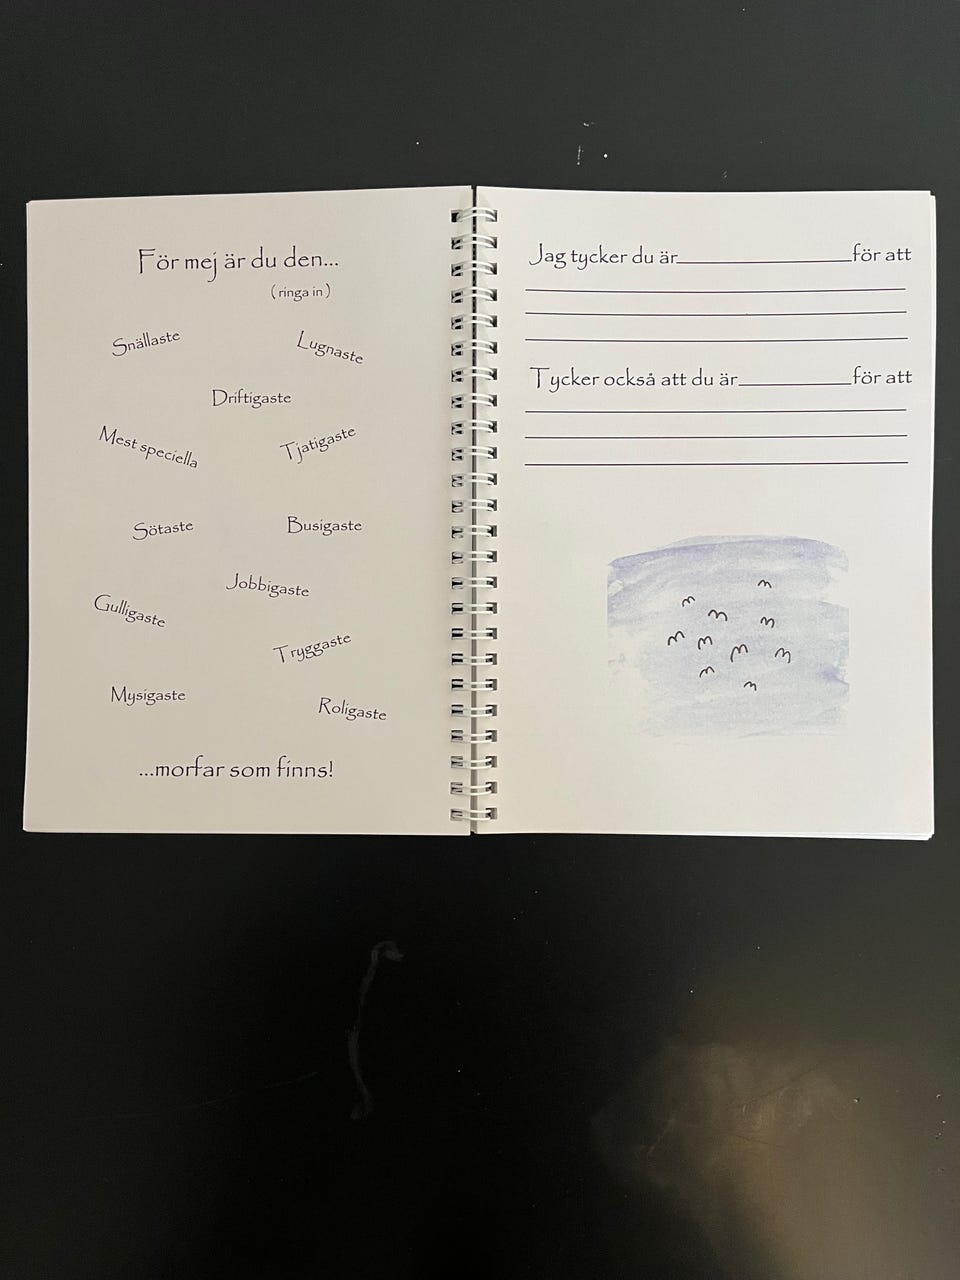 För mej är du den...
(ringa in)
Snällaste
Lugnaste
Driftigaste
Mest speciella
Tjatigaste
Sötaste
Busigaste
Jobbigaste
Gulligaste
Tryggaste
Mysigaste
Roligaste
...morfar som finns!
Jag tycker du är______________för att
Tycker också att du är_________för att